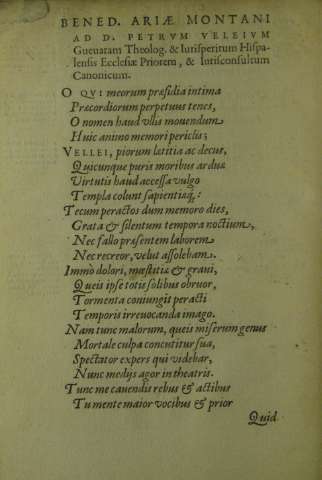 BENED. ARIÆ MONTANI
AD D. PETRVM VELEIVM
Gueuatam Theolog. & Iurisperitum Hispa-
lensis Ecclesiæ Priorem, & Iurisconsultum
Canonicum.
O QVI meorum præsidia intima
Præcordiorum perpetuus tenes,
O nomen haud vllis mouendum
Huic animo memori periclis;
VELLEI, piorum lætitia ac decus,
Quicunque puris moribus arduæ
Virtutis haud accessa vulgo
Templa colunt sapientiaq́;:
Tecum peractos dum memoro dies,
Grata & silentum tempora noctium,
Nec fallo præsentem laborem
Nec recreor, velut assolebam.
Immò dolori, mæstitiæ & graui,
Queis ipse totis solibus obruor,
Tormenta coniungit peracti
Temporis irreuocanda imago.
Nam tunc malorum, queis miserum genus
Mortale culpa concutitur sua,
Spectator expers qui videbar,
Nunc medijs agor in theatris.
Tunc me cauendis rebus & actibus
Tu mente maior vocibus & prior
Quid